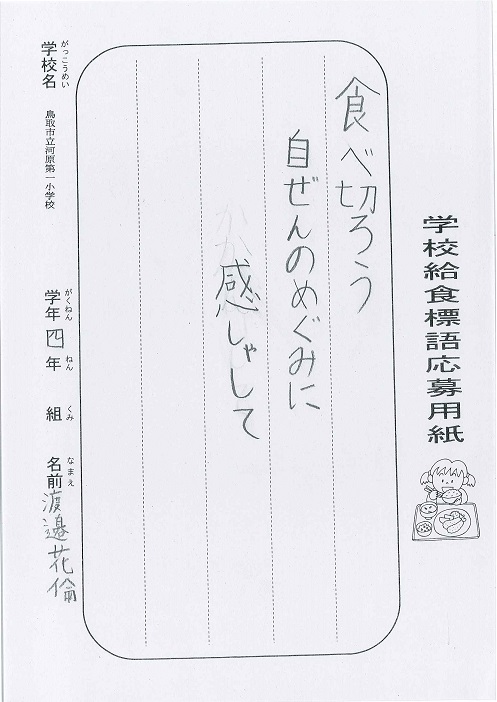 学校給食標語応募用紙
食べ切ろう
自ぜんのめぐみに
感しゃして
がっこうめい
学校名 鳥取市立河原第一小学校
がくねん ねん くみ
学年 四年 組
なまえ
名前 渡邉花倫